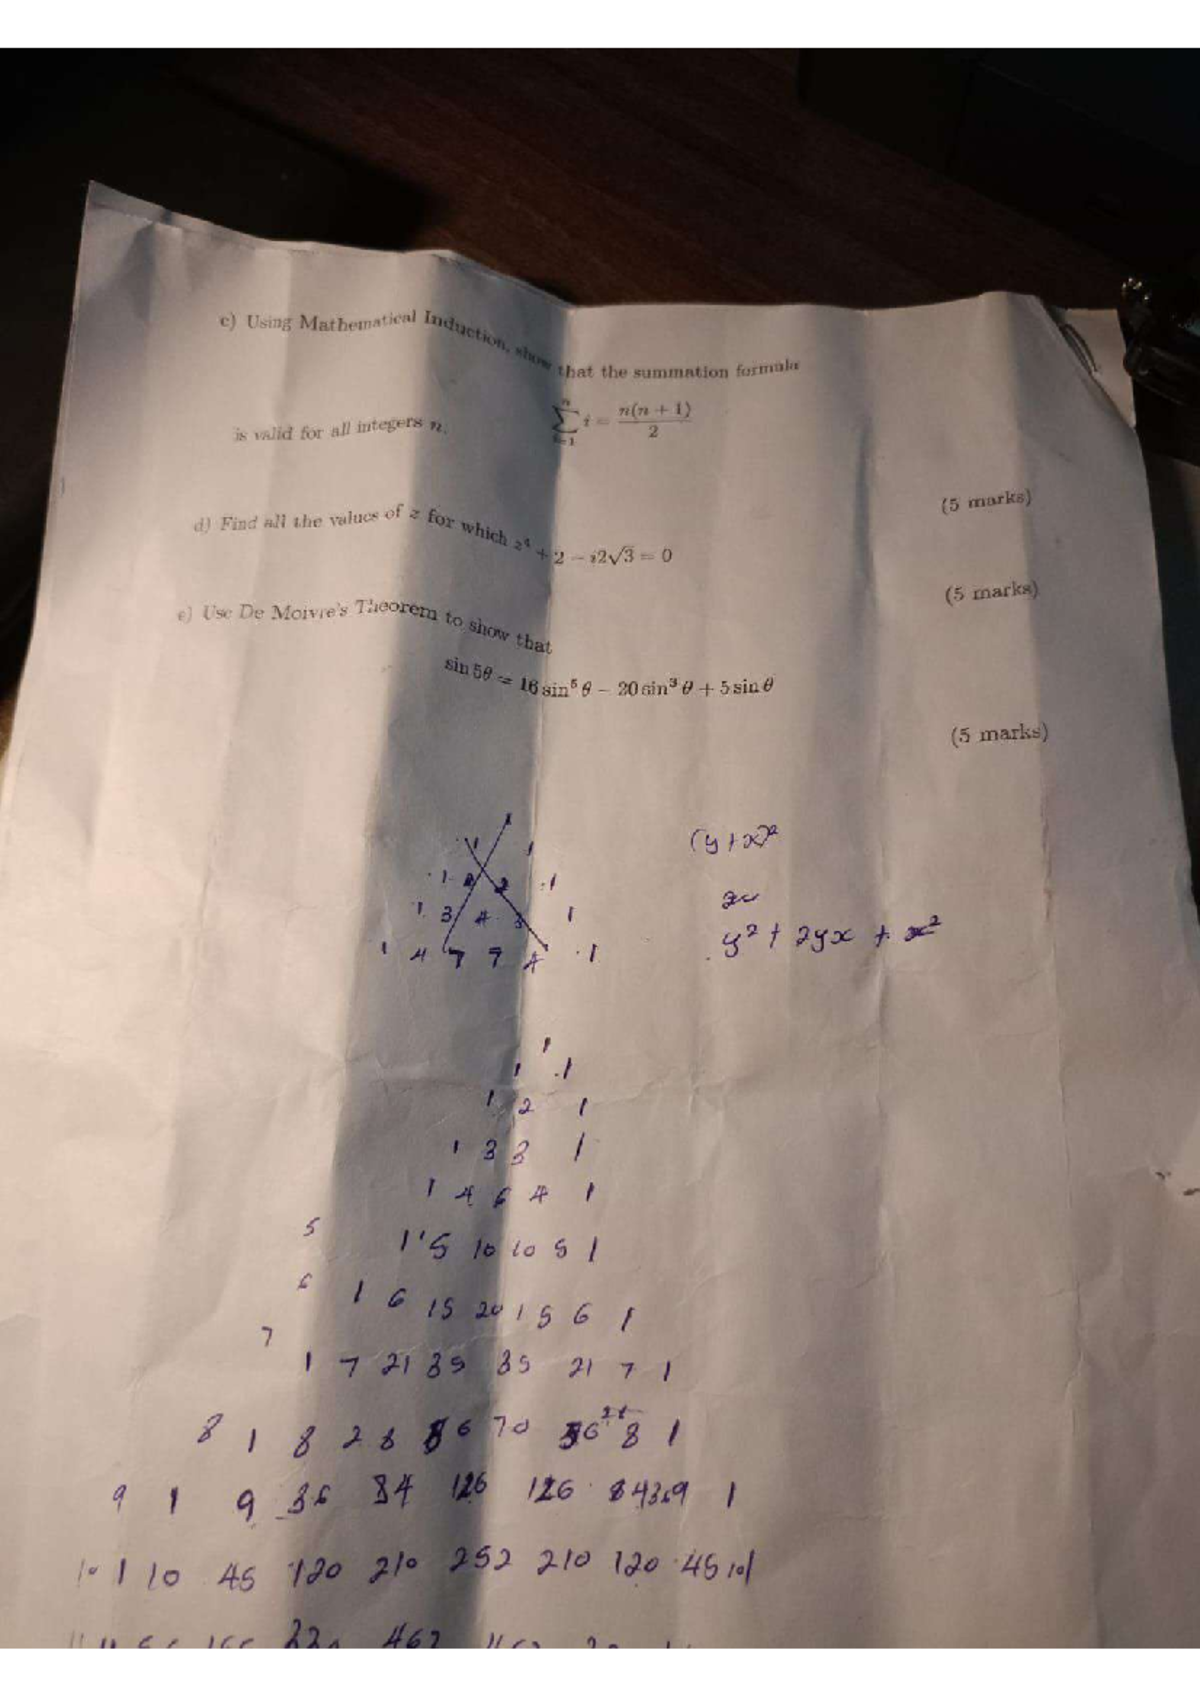 c) Using Mathematical Induction, show that the summation formula
∑ⁿᵢ₌₁ i = n(n + 1)/2
is valid for all integers n.
(5 marks)
d) Find all the values of z for which z⁴ + 2 − i2√3 = 0
(5 marks)
e) Use De Moivre's Theorem to show that
sin 5θ = 16 sin⁵ θ − 20 sin³ θ + 5 sin θ
(5 marks)
1 1
1 2 2 1
1 3 4 3 1
1 4 7 7 4 1
(y+x)²
y² + 2yx + x²
1
1 1
1 2 1
1 3 3 1
1 4 6 4 1
5 1 5 10 10 5 1
6 1 6 15 20 15 6 1
7 1 7 21 35 35 21 7 1
8 1 8 28 56 70 56 28 8 1
9 1 9 36 84 126 126 84 36 9 1
10 1 10 45 120 210 252 210 120 45 10 1
462